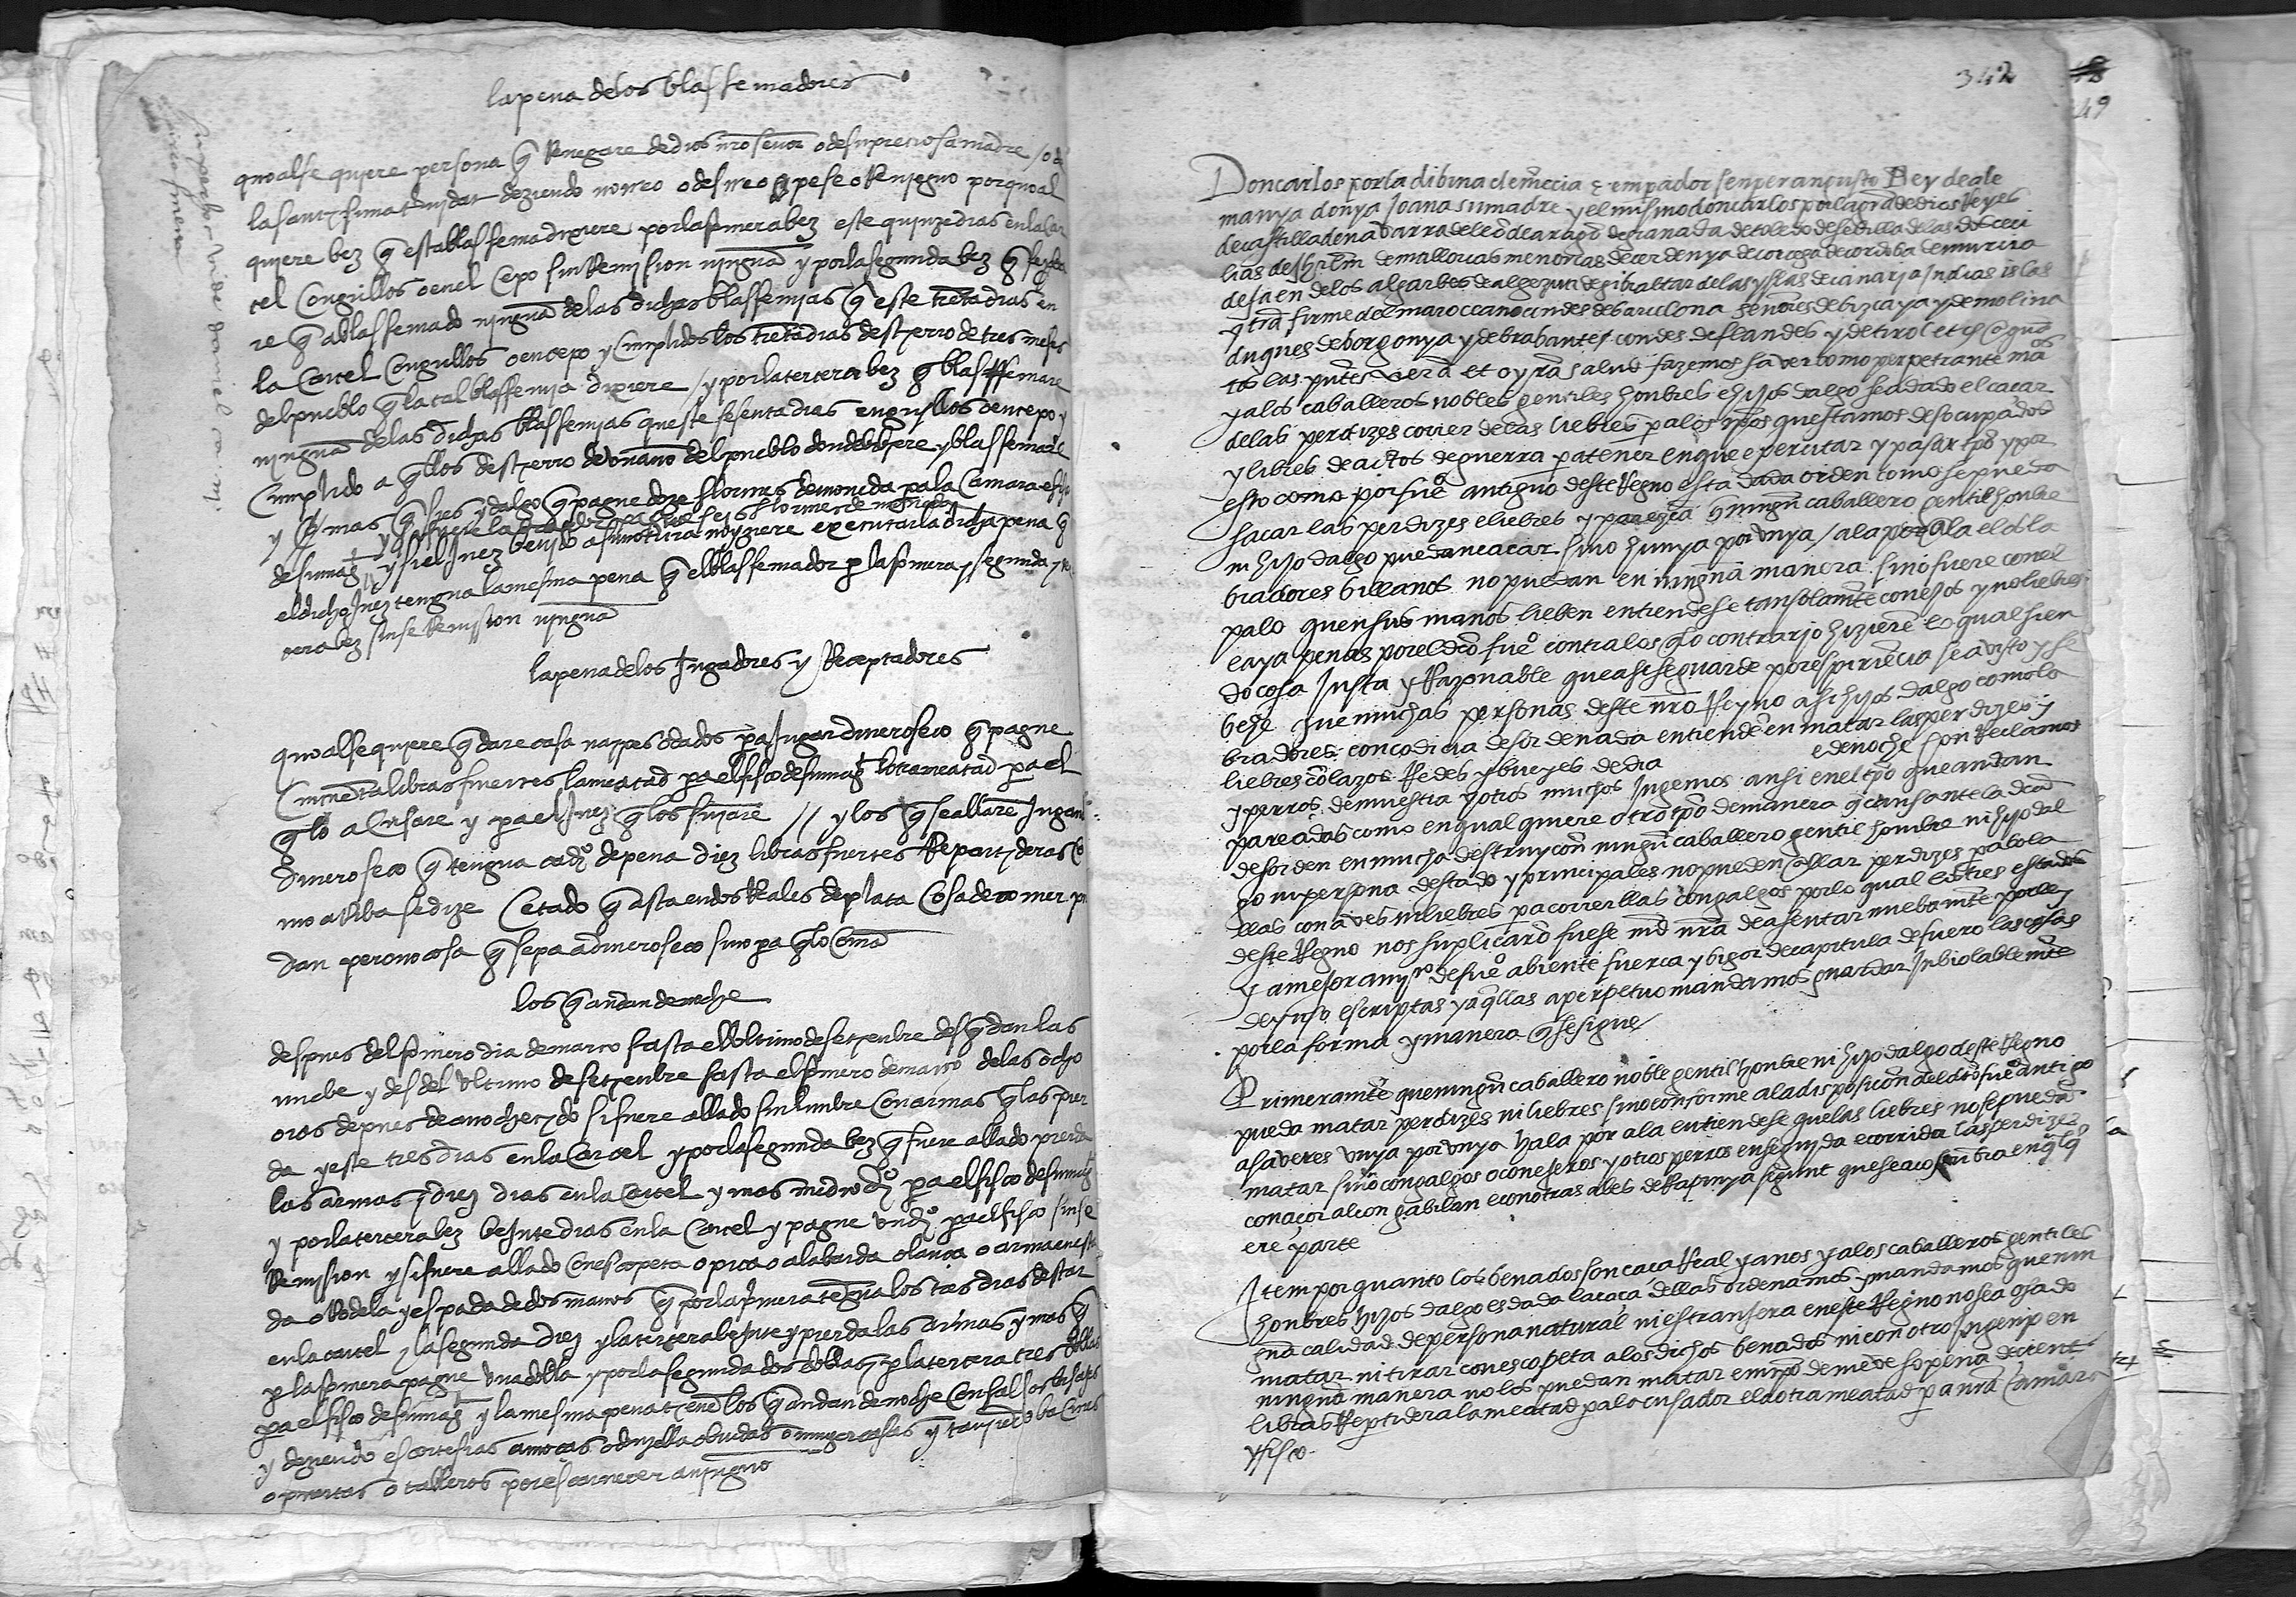 la pena de los blasfemadores
qualsequiere persona q̃ Renegare de dios nr̃o señor o de su preciosa madre / o de
la santisima trinidat deziendo no creo o descreo o pese o Reniegno por qual
quiere bez q̃ esta blasfema dixiere por la primera bez este quinze dias en la car
cel con grillos o en el cepo sin Remision ninguna y por la segunda bez q̃
re q̃ a blasfemado ninguna de las dichas blasfemias q̃ este treinta dias en
la carcel con grillos o en cepo y cumplidos los trẽta dias destierro de tres meses
del pueblo q̃ la tal blasfemia dixiere / y por la tercera bez q̃ blasfemare
ninguna de las dichas blasfemias que este sesenta dias en grillos o en cepo y
cumplido aq̃llos destierro de un anno del pueblo donde biviere y blasfemare
y mas q̃ si es ydalgo q̃ pague doze florines de moneda pa la camara e fisco
de su mag.t y si fuere labrador pague seis florines de moneda
y si el Juez benido a su notiçia no quiere executar la dicha pena q̃
el dicho Juez tengua la mesma pena q̃ el blasfemador por la primera y segunda y ter
cera bez sin se Remission ninguna
la pena de los Jugadores y Receptadores
qualsequiere q̃ dare casa naypes o dados pa Jugar dinero seco q̃ pague
cinquenta libras fuertes la meatad pa el fisco de su mag.t la otra meatad pa el
q̃ lo acusare y pa el Juez q̃ los / / y los q̃ se allare Jugando
dinero seco q̃ tengua de pena diez libras fuertes Repartideras co
mo arriba se dize cetado q̃ asta en dos Reales de plata cosa de comer pue
dan pero no cosa q̃ sepa a dinero seco sino pa q̃ lo coman
los q̃ andan de noche
despues del primero dia de março fasta el ultimo de setiembre desq̃ dan las
nuebe y des del ultimo de setienbre fasta el primero de março de las ocho
oras depues de anochecido si fuere allado sin lunbre con armas q̃ las pier
da y este tres dias en la carcel y por la segunda bez q̃ fuere allado pierda
las armas y diez dias en la carcel y mas medio pa el fisco de su mag.t
y por la tercera bez beinte dias en la carcel y pague un pa el fisco sin se
Remision y si fuere allado con escopeta o pica o alabarda o lança o arma enasta
da o Rodela y espada de dos manos q̃ por la primera tẽgua los tres dias destar
en la carcel y la segunda diez y la tercera beinte y pierda las armas y mas q̃
por la primera pague una dobla y por la segunda dos doblas y por la tercera tres doblas
pa el fisco de su mag.t y la mesma pena tienẽ los q̃ andan de noche con falsos bisajes
y deziendo escortesias a moças o donzellas o biudas o mugeres casadas
o puertas o talleros por escarnecer a ninguno
342
49
Don carlos por la dibina clemẽcia e enperador senper augusto Rey de ale
manya donya Joana su madre y el mismo don carlos por la gra de dios Reyes
de castilla de nabarra de leõ de aragõ de granada de toledo de sebilla de las dos ceci
lias de Jhrlm de mallorcas menorcas de cerdenya de corcega de cordoba de murcia
de Jaen de los algarbes de algezira de gibraltar de las yslas de canaria Indias islas
y tr̃a firme del mar occano condes de barcelona senõres de bizcaya y de molina
duques de borgonya y de brabante condes de flandes y de tirol etc. A quãtos
las pñtes verã et oyrã salud fazemos saver como per petrante mã
y a los caballeros nobles gentiles honbres e hijos dalgo sea dado el caçar
de las perdizes correr de las liebres pa los tpõs questamos desocupados
y libres de actos de guerra pa tener en que exercitar y pasar tpõ y por
esto como por fuero antiguo deste Regno esta dada orden como se pueda
sacar las perdizes e liebres y parezca q̃ ningũ caballero gentil honbre
ni hijo dalgo puedan caçar sino hunya por unya / ala por ala e los la
bradores billanos no puedan en ninguna manera sino fuere con el
palo quen sus manos lieben entiendese tan solamẽte conejos y no liebres
so penas por el dho fuero contra los q̃ lo contrario hizierẽ lo qual sien
do cosa Justa y Razonable que asi se guarde por esperiẽcia se a visto y se
beye que muchas personas deste nr̃o Reyno asi hijos dalgo como la
bradores con codicia desordenada entiendẽ en matar las perdizes y
liebres cõ lazos Redes y bueyes de dia e de noche con Reclamos
y perros de muestra y otros muchos Ingenios ansi en el tpõ que andan
pareadas como en qual quiere otro tpõ de manera q̃ causante la dcha
desorden en mucha destruycõn ningũ caballero gentil hombre ni hijo dal
go ni persona destado y principales no pueden allar perdizes pa bola
llas con aves ni liebres pa correrllas con galgos por lo qual los tres estados
deste Regno nos suplicarõ fuese md nr̃a de asentar nuebamte por ley
y amejoramyto de fuero abiente fuerça y bigor de capitula de fuero las cosas
de yuso escriptas y aq̃llas a perpetuo mandamos guardar Inbiolablemte
por la forma y manera q̃ se sigue /
Primeramte que ningũ caballero noble gentil honbre ni hijo dalgo deste Regno
pueda matar perdizes ni liebres sino conforme a la disposicõn del dho fuero antigo
asaveres unya por unya hala por ala entiendese que las liebres no se puedã
matar sino con galgos o conejeros y otros perros en seguida e corrida las perdizes
con açor alcon gabilan e con otras abes de Rapinya segunt que se acostunbra en
ere parte
Item por quanto los benados son caça Real y a nos y a los caballeros gentiles
honbres hijos dalgo es dada la caça dellas ordenamos y mandamos que nin
guna calidad de persona natural ni estranjera en este Regno no sea osado
matar ni tirar con escopeta a los dichos benados ni con otro Ingenio en
ninguna manera no los puedan matar so pena de cient
libras Reptidera la meatad pa lo cusador e la otra meatad pa nr̃a camara
y fisco